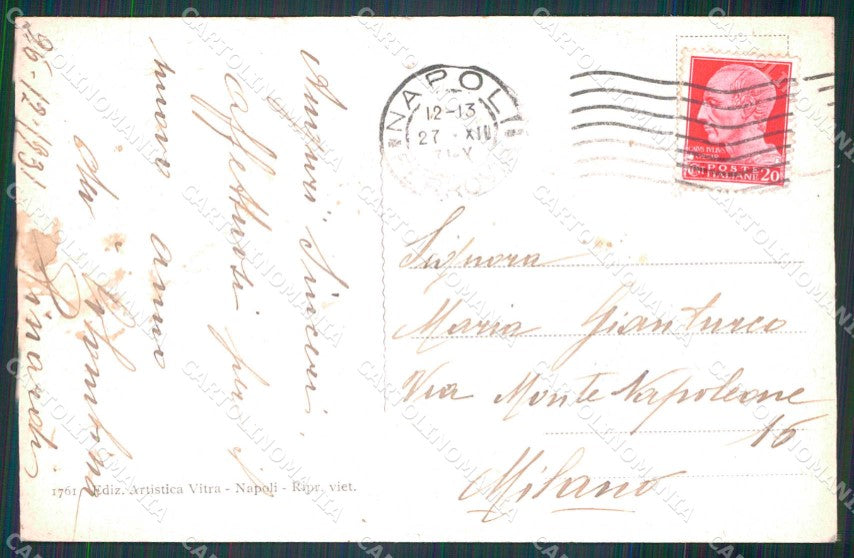 26-12-1931
Auguri sinceri
affettuosi per il
nuovo anno
da
1761 Ediz. Artistica Vitra - Napoli - Ripr. viet.
NAPOLI
12-13
27 XII
POSTE
ITALIANE 20
Signora
Maria Gianturco
Via Monte Napoleone
16
Milano
CARTOLINOMANIA